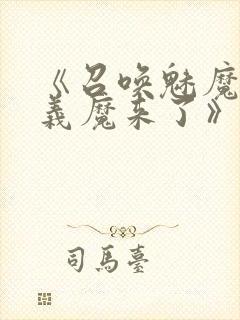 《召唤魅魔
義魔来了》
司馬臺